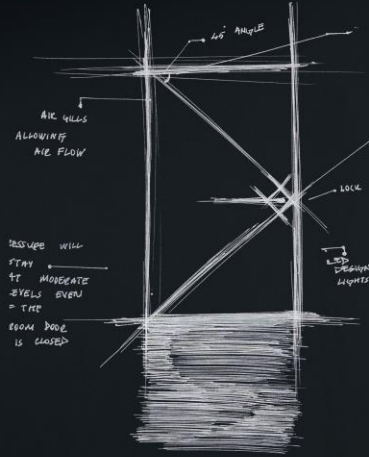 45° ANGLE
AIR GILLS
ALLOWING
AIR FLOW
LOCK
LED
DESIGN
LIGHTS
ESSURE WILL
STAY
AT MODERATE
EVELS EVEN
THE
ROOM DOOR
IS CLOSED